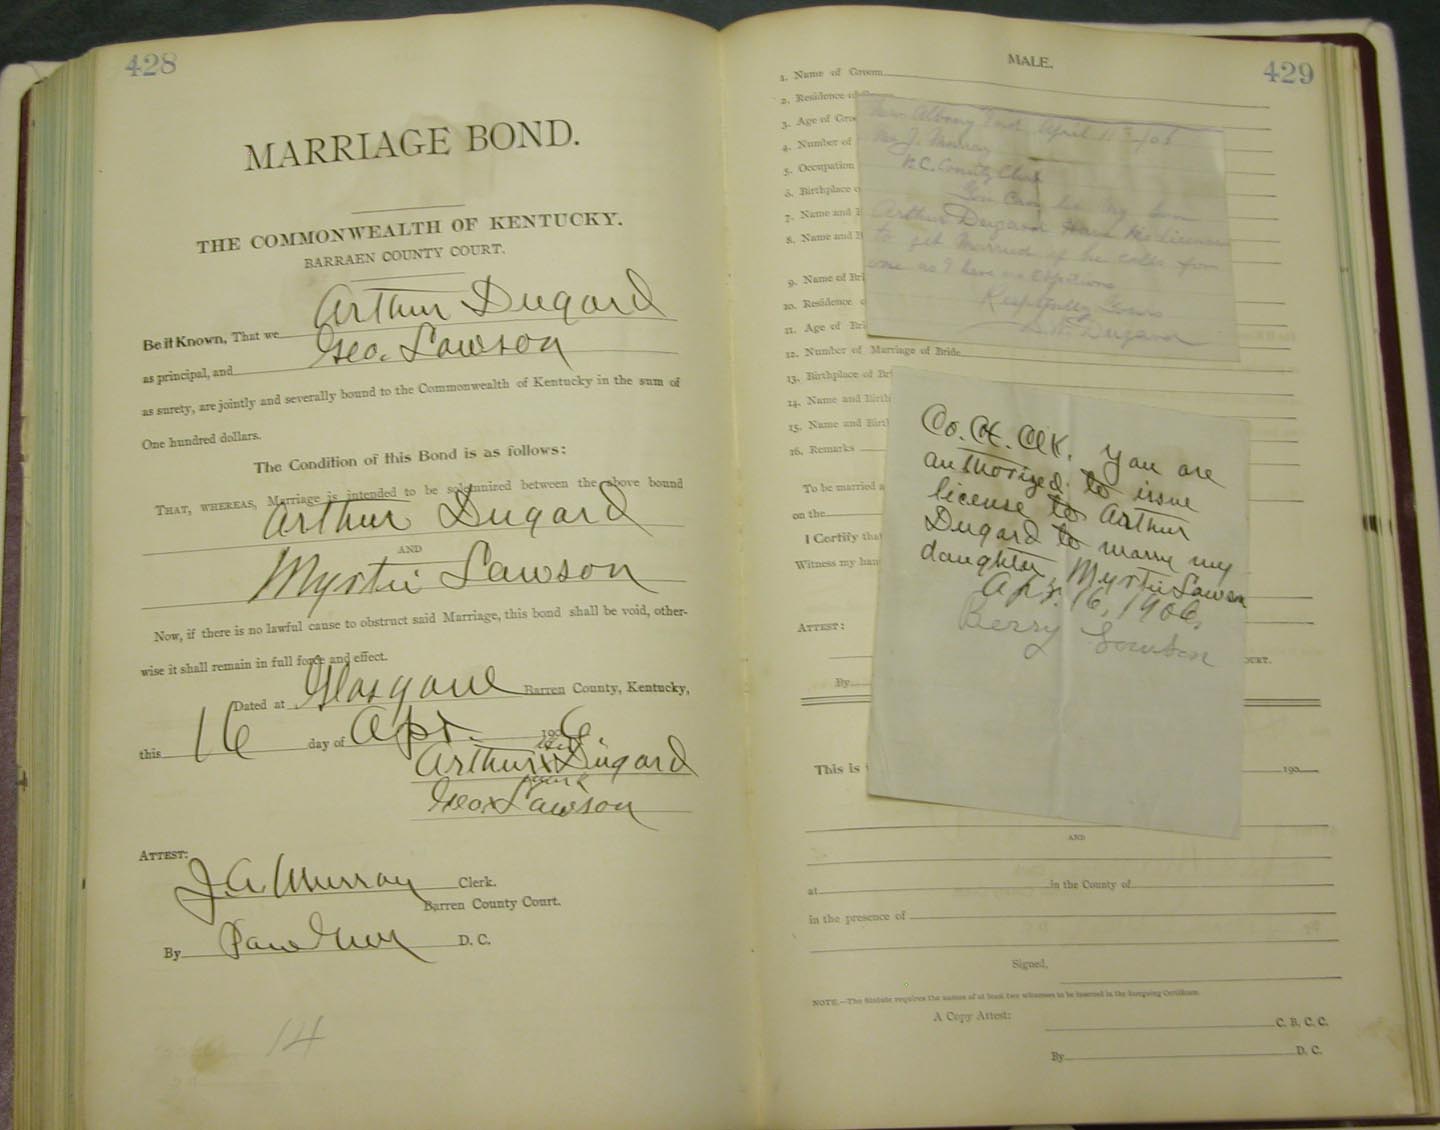 428
MARRIAGE BOND.
THE COMMONWEALTH OF KENTUCKY.
BARRAEN COUNTY COURT.
Be it Known, That we Arthur Dugard
as principal, and Geo. Lawson
as surety, are jointly and severally bound to the Commonwealth of Kentucky in the sum of
One hundred dollars.
The Condition of this Bond is as follows:
THAT, WHEREAS, Marriage is intended to be solemnized between the above bound
Arthur Dugard
AND
Myrtie Lawson
Now, if there is no lawful cause to obstruct said Marriage, this bond shall be void, other-
wise it shall remain in full force and effect.
Dated at Glasgow Barren County, Kentucky,
this 16 day of Apr. 1906
Arthur x Dugard
Geo x Lawson
ATTEST:
J. A. Murray Clerk.
Barren County Court.
By D. C.
14
429
MALE.
1. Name of Groom
2. Residence of Groom
3. Age of Groo
4. Number of
5. Occupation
6. Birthplace o
7. Name and B
8. Name and B
9. Name of Bri
10. Residence o
11. Age of Bri
12. Number of Marriage of Bride
13. Birthplace of Bri
14. Name and Birth
15. Name and Birth
16. Remarks
To be married a
on the
I Certify that
Witness my han
ATTEST:
OURT.
By
New Albany Ind April 13/06
Mr J. Murray
B.C. County Clerk
You Can let my Son
Arthur Dugard Have
to get married if he calls from
one as I have no
Respectfully Yours
Dugard
Co. Ct. Clk. You are
authorized to issue
license to Arthur
Dugard to marry my
daughter, Myrtie Lawson
Apr. 16, 1906.
Berry Lawson
This is 190
AND
at in the County of
in the presence of
Signed,
NOTE.—The Statute requires the names of at least two witnesses to be inserted in the foregoing Certificate.
A Copy Attest:
C. B. C. C.
By D. C.